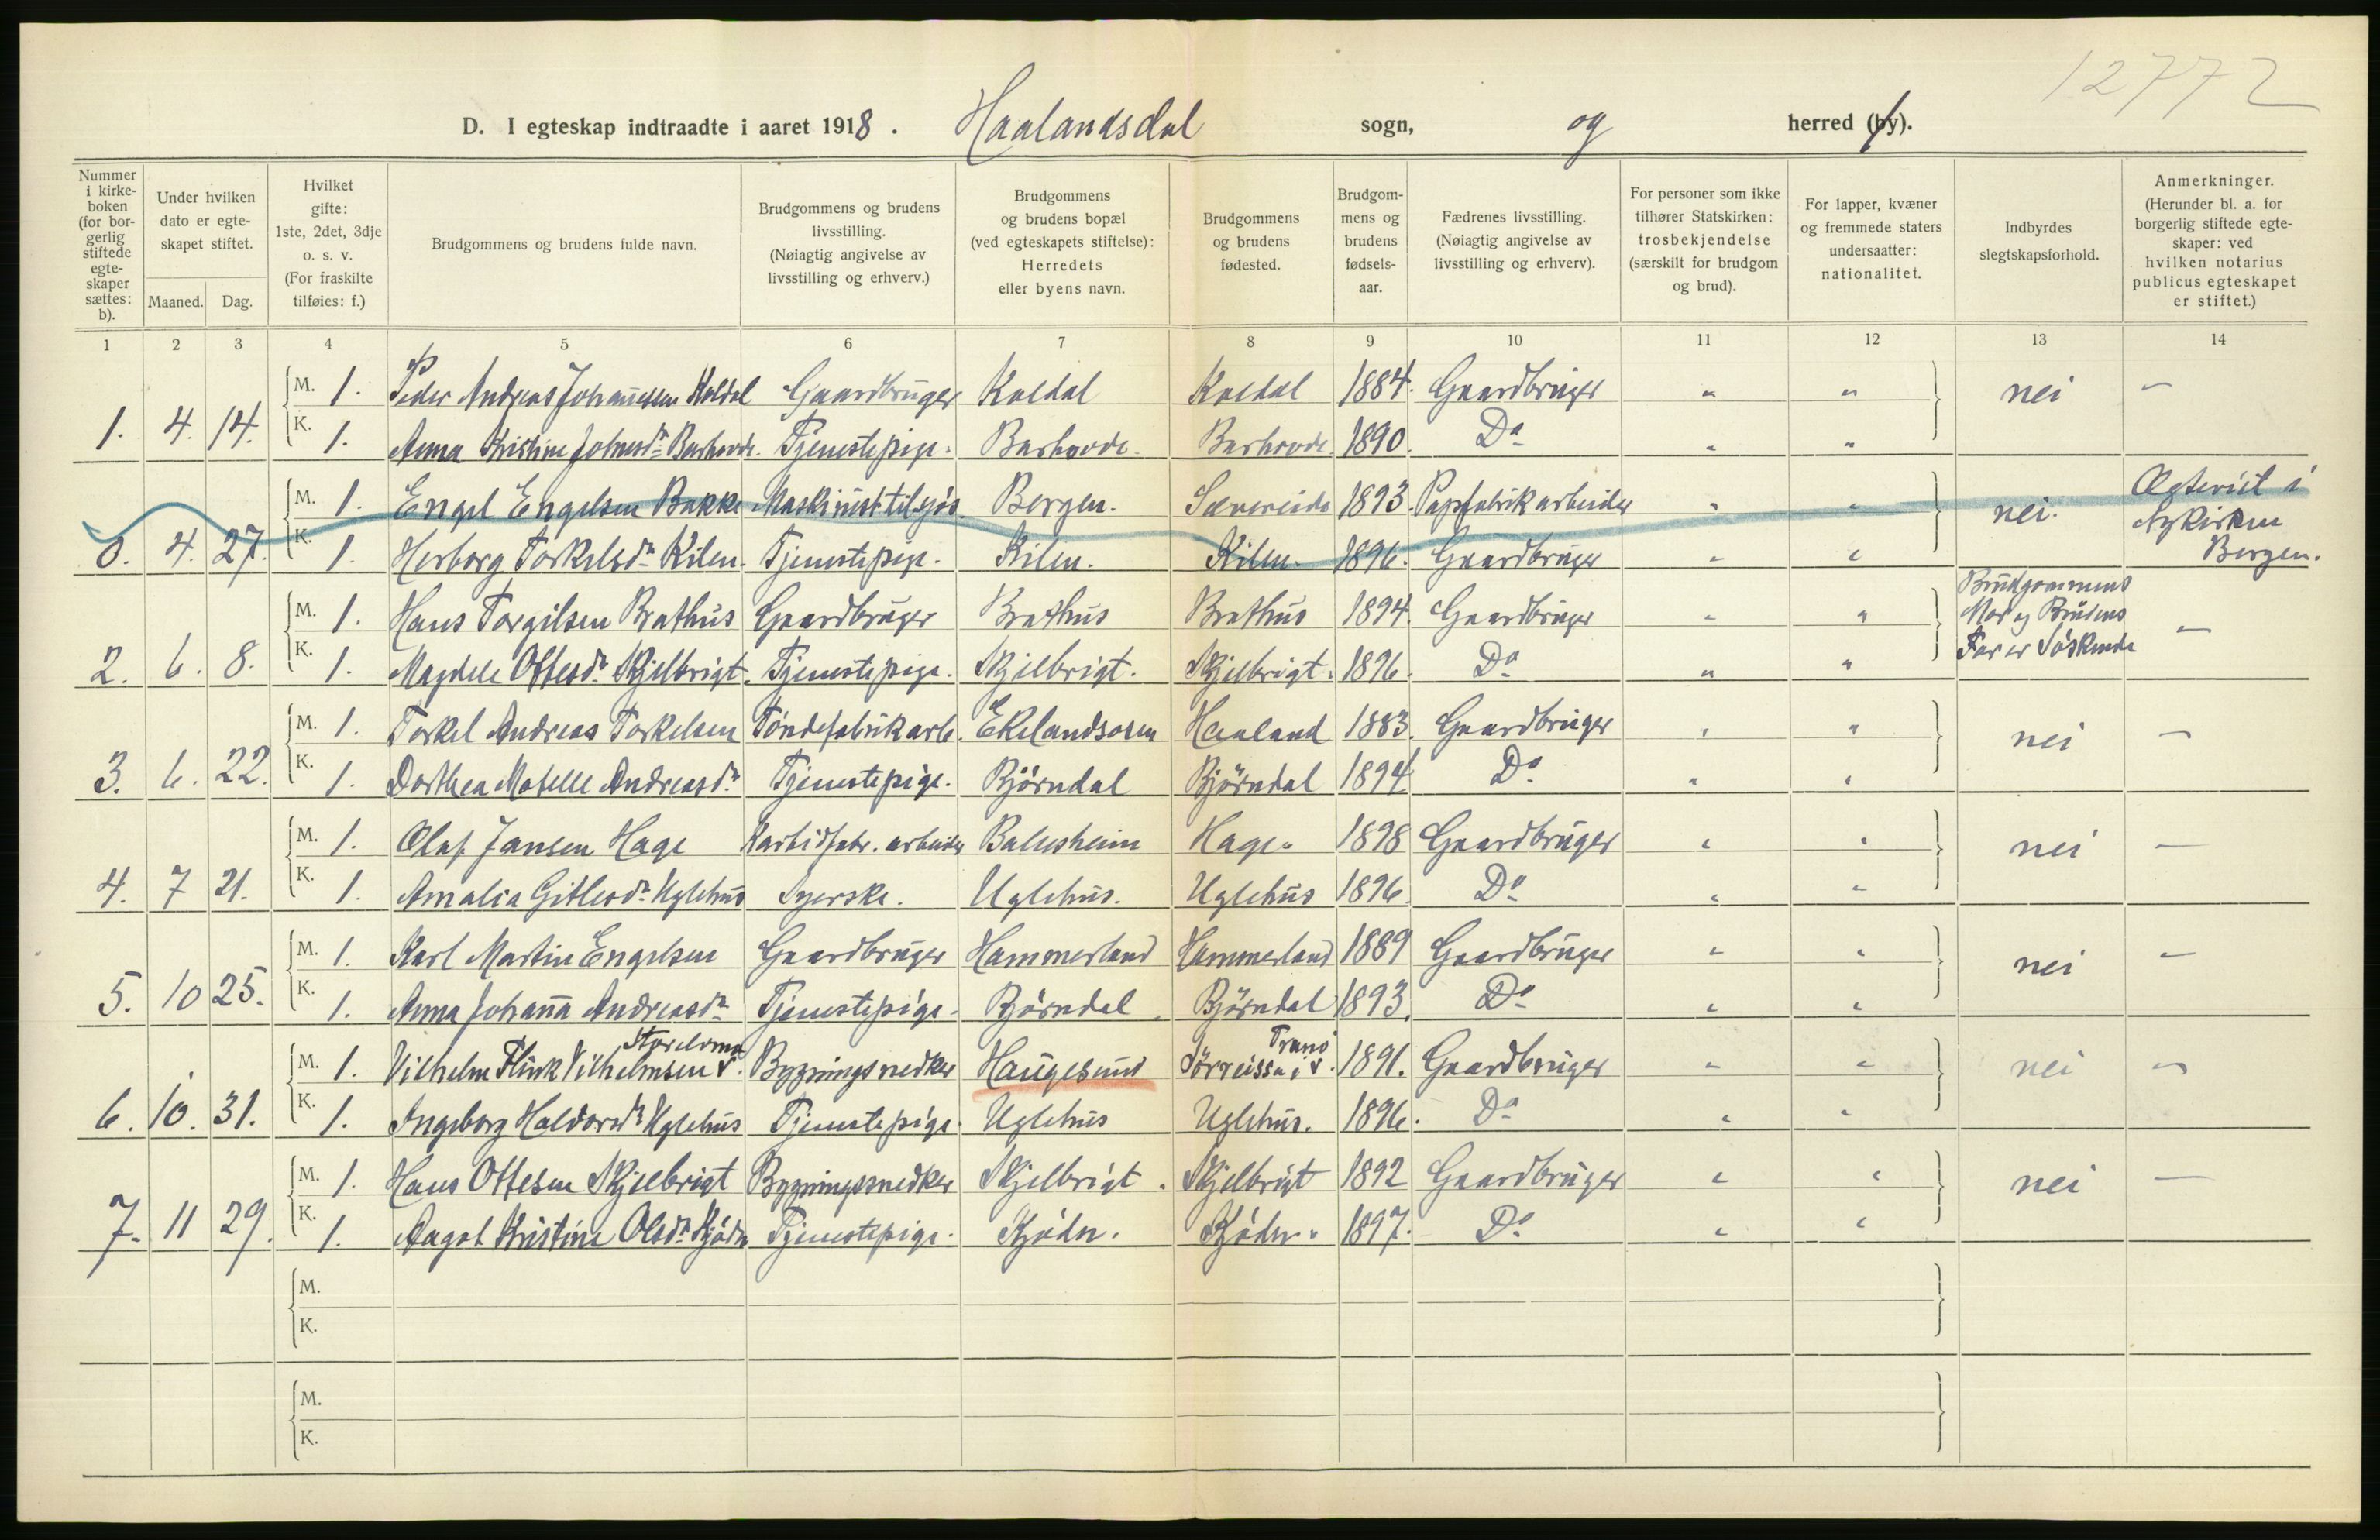 12772
D. I egteskap indtraadte i aaret 1918. Haalandsdal sogn, og herred (by).
Nummer i kirkeboken (for borgerlig stiftede egteskaper sættes: b).
Under hvilken dato er egteskapet stiftet.
Maaned. Dag.
Hvilket gifte: 1ste, 2det, 3dje o. s. v. (For fraskilte tilføies: f.)
Brudgommens og brudens fulde navn.
Brudgommens og brudens livsstilling. (Nøiagtig angivelse av livsstilling og erhverv.)
Brudgommens og brudens bopæl (ved egteskapets stiftelse): Herredets eller byens navn.
Brudgommens og brudens fødested.
Brudgommens og brudens fødselsaar.
Fædrenes livsstilling. (Nøiagtig angivelse av livsstilling og erhverv).
For personer som ikke tilhører Statskirken: trosbekjendelse (særskilt for brudgom og brud).
For lapper, kvæner og fremmede staters undersaatter: nationalitet.
Indbyrdes slegtskapsforhold.
Anmerkninger. (Herunder bl. a. for borgerlig stiftede egteskaper: ved hvilken notarius publicus egteskapet er stiftet.)
1 2 3 4 5 6 7 8 9 10 11 12 13 14
M. 1. Peder Andreas Johannessen Koldal Gaardbruger Koldal Koldal 1884. Gaardbruger " " nei —
1. 4. 14. K. 1. Anna Kristine Johnsdr. Barhovde. Tjenestepige. Barhovde. Barhovde. 1890. Do " "
M. 1. Engel Engelsen Bakke Maskinist tilsjøs. Bergen. Sævereide 1893. Papfabrikarbeider " " nei. Ægteviet i Nykirken Bergen.
0. 4. 27. K. 1. Herborg Torkelsdr. Kilen. Tjenestepige. Kilen. Kilen. 1896. Gaardbruger " "
M. 1. Hans Torgilsen Brathus Gaardbruger Brathus Brathus 1894. Gaardbruger " " Brudgommens Mor og Brudens Far er Søskende —
2. 6. 8. K. 1. Magdele Ottesdr. Skjelbrigt. Tjenestepige. Skjelbrigt. Skjelbrigt. 1896. Do " "
M. 1. Torkel Andreas Torkelsen Tøndefabrikarb. Ekelandsosen Haaland 1883. Gaardbruger " " nei —
3. 6. 22. K. 1. Dorthea Motelle Andreasdr. Tjenestepige. Bjørndal Bjørndal 1894 Do " "
M. 1. Olaf Jansen Hage Karbidfabr. arbeider Balesheim Hage. 1898 Gaardbruger " " nei —
4. 7 21. K. 1. Amalia Gitlesdr. Uglehus Syerske. Uglehus. Uglehus 1896. Do " "
M. 1. Karl Martin Engelsen Gaardbruger Hammerland Hammerland 1889 Gaardbruger " " nei —
5. 10 25. K. 1. Anna Johanna Andreasdr. Tjenestepige. Bjørndal. Bjørndal 1893. Do " "
M. 1. Vilhelm Flink Vilhelmsen Bygningsnedker Haugesund Sørreissa i Troms 1891. Gaardbruger " " nei —
6. 10. 31. K. 1. Ingeborg Haldorsdr. Uglehus Tjenestepige. Uglehus Uglehus. 1896. Do " "
M. 1. Hans Ottesen Skjelbrigt Bygningssnedker Skjelbrigt. Skjelbrigt 1892 Gaardbruger " " nei —
7. 11 29. K. 1. Aagot Kristine Olsdr. Kjødn Tjenestepige. Kjødn. Kjødn. 1897. Do " "
M.
K.
M.
K.